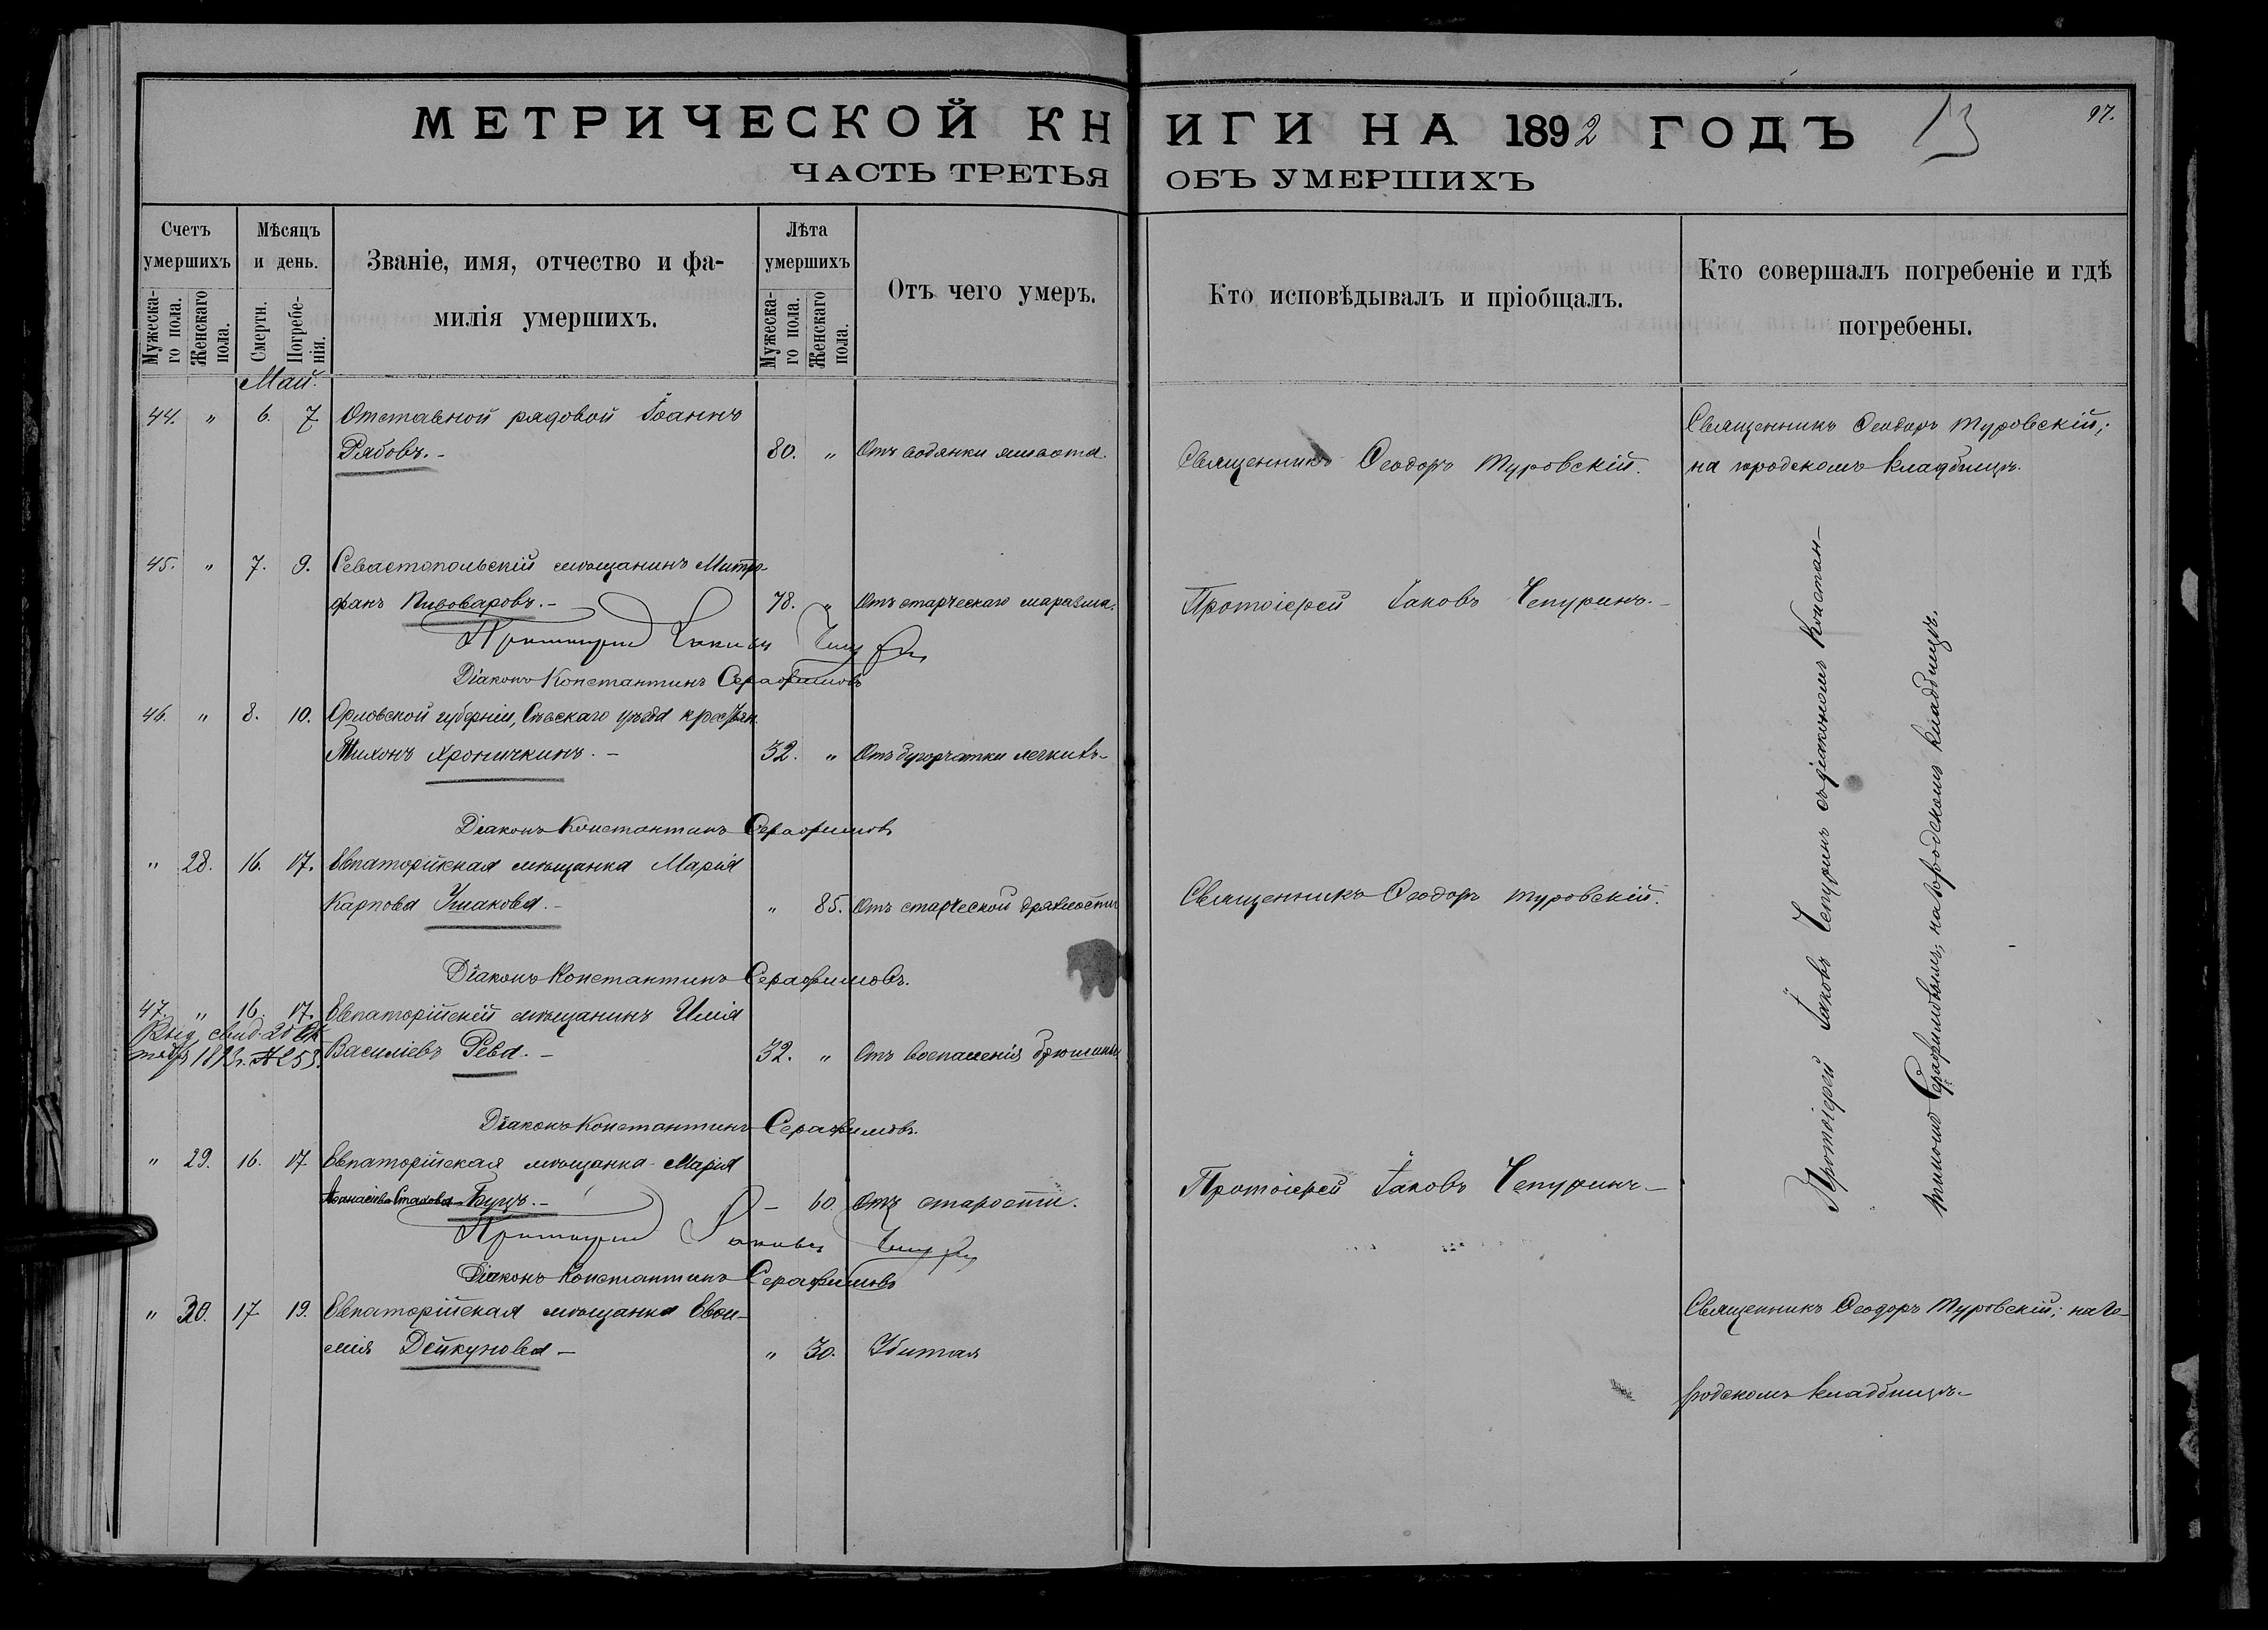 МЕТРИЧЕСКОЙ КНИГИ НА 1892 ГОДЪ
13
97.
ЧАСТЬ ТРЕТЬЯ ОБЪ УМЕРШИХЪ
Счетъ умершихъ
Мѣсяцъ и день.
Званіе, имя, отчество и фа-
милія умершихъ.
Лѣта умершихъ
Отъ чего умеръ.
Кто исповѣдывалъ и пріобщалъ.
Кто совершалъ погребеніе и гдѣ
погребены.
Мужеска-
го пола.
Женскаго
пола.
Смерти.
Погребе-
нія.
Мужеска-
го пола.
Женскаго
пола.
Май.
44. " 6. 7 Отставной рядовой Іоаннъ
Рябовъ.- 80. " Отъ водянки живота.
Священникъ Ѳеодоръ Туровскій.
Священникъ Ѳеодоръ Туровскій;
на городскомъ кладбищѣ.
45. " 7. 9. Севастопольскій мѣщанинъ Митро-
фанъ Пивоваровъ.- 78. " Отъ старческаго маразма.
Протоіерей Іаковъ Чепуринъ.-
Протоіерей Іаковъ Чепуринъ
Діаконъ Константинъ Серафимовъ
46. " 8. 10. Орловской губерніи, Сѣвскаго уѣзда крестьян.
Тихонъ Хроничкинъ.- 32. " Отъ бугорчатки легкихъ-
Діаконъ Константинъ Серафимовъ
" 28. 16. 17. Евпаторійская мѣщанка Марія
Карпова Ушакова.- " 85. Отъ старческой дряхлости
Священникъ Ѳеодоръ Туровскій.
Діаконъ Константинъ Серафимовъ.
47. " 16. 17. Евпаторійскій мѣщанинъ Илія
Васильевъ Рева.- 32. " Отъ воспаленія брюшины
Выд. свид. 20 Ок
тября 1893г. №253.
Діаконъ Константинъ Серафимовъ.
" 29. 16. 17 Евпаторійская мѣщанка Марія
Аѳанасіева Стахова Буцъ.- - 60. Отъ старости.
Протоіерей Іаковъ Чепуринъ-
Протоіерей Іаковъ Чепуринъ
Діаконъ Константинъ Серафимовъ
Протоіерей Іаковъ Чепуринъ съ діакономъ Констан-
тиномъ Серафимовымъ; на городскомъ кладбищѣ.
" 30. 17 19. Евпаторійская мѣщанка Евѳи-
мія Дейкунова- " 30. Убитая
Священникъ Ѳеодоръ Туровскій; на го-
родскомъ кладбищѣ-